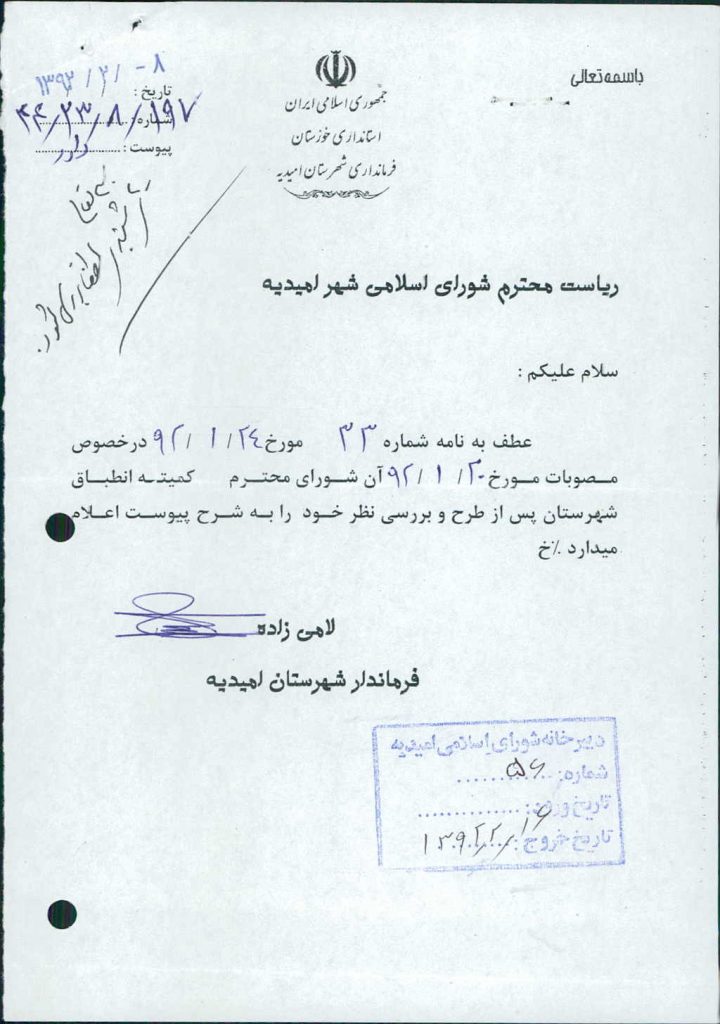 باسمه تعالی
جمهوری اسلامی ایران
استانداری خوزستان
فرمانداری شهرستان امیدیه
تاریخ : ۱۳۹۲/۲/۰۸
شماره : ۴۴/۲۳/۸/۱۹۷
پیوست : دارد
ریاست محترم شورای اسلامی شهر امیدیه
سلام علیکم :
عطف به نامه شماره ۳۳ مورخ ۹۲/۱/۲۴ درخصوص
مصوبات مورخ ۹۲/۱/۲۰ آن شورای محترم کمیته انطباق
شهرستان پس از طرح و بررسی نظر خود را به شرح پیوست اعلام
میدارد ٪خ
لامی زاده
فرماندار شهرستان امیدیه
دبیرخانه شورای اسلامی امیدیه
شماره: ۵۶
تاریخ ورود:
تاریخ خروج: ۱۳۹۲/۲/۱۶